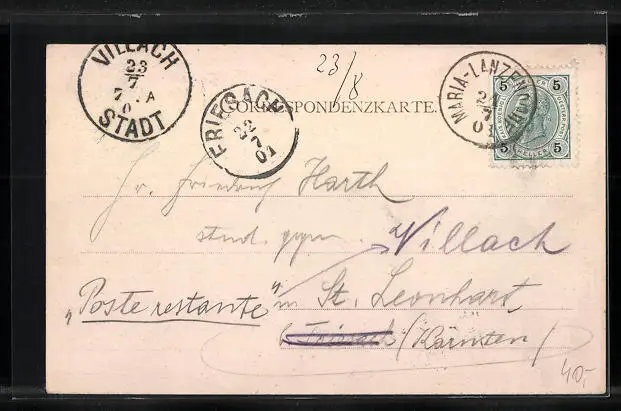 VILLACH
23
7
7 A
0
STADT
23/8
FRIESACH
22
7
01
CORRESPONDENZKARTE.
MARIA-LANZEN
7
01
5 5
HELLER
5 5
Hr. Friedrich Harth
stud. Villach
„Poste restante“ in St. Leonhart
b/ Friesach (Kärnten)
40,-